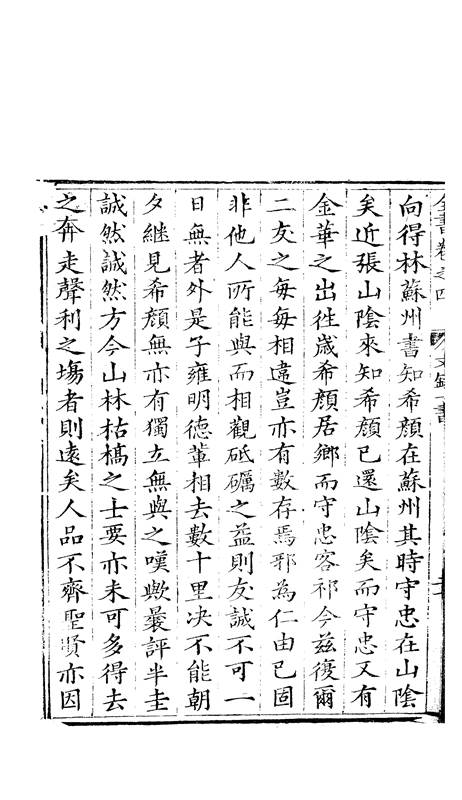 全書卷之四　文錄一書
向得林蘇州書知希顔在蘇州其時守忠在山隂
矣近張山隂來知希顔已還山隂矣而守忠又有
金華之出徃歲希顔居鄉而守忠客祁今兹復爾
二友之每每相違豈亦有數存焉邪為仁由已固
非他人所能與而相觀砥礪之益則友誠不可一
日無者外是子雍明德輩相去數十里决不能朝
夕繼見希顔無亦有獨立無與之嘆歟曩評半圭
誠然誠然方今山林枯槁之士要亦未可多得去
之奔走聲利之塲者則遠矣人品不齊聖賢亦因